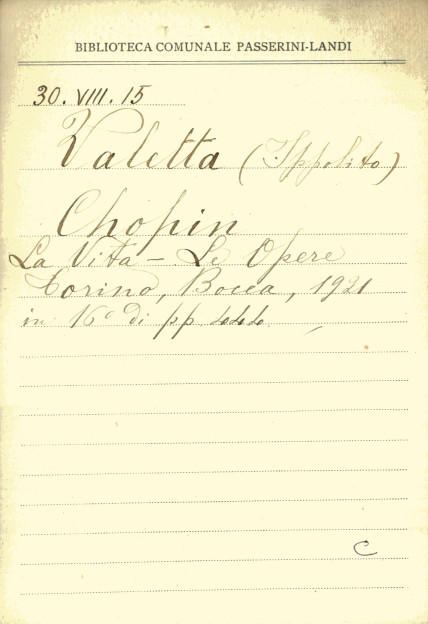 BIBLIOTECA COMUNALE PASSERINI-LANDI
30. VIII. 15
Valetta (Ippolito)
Chopin
La Vita - Le Opere
Torino, Bocca, 1921
in 16º di pp. 444
C